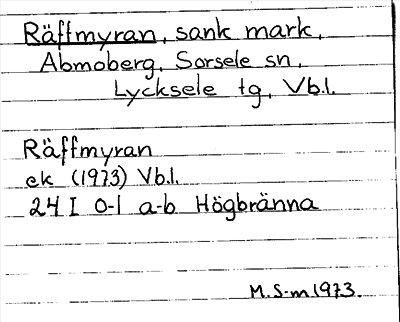 Räffmyran, sank mark,
Abmoberg, Sorsele sn,
Lycksele tg, Vb.l.
Räffmyran
ek (1973) Vb.l.
24 I 0-1 a-b Högbränna
M. S-m 1973.